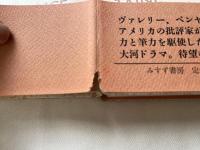 ヴァレリー、ベンヤ
アメリカの批評家が
力と筆力を駆使した
大河ドラマ。待望の
みすず書房 定